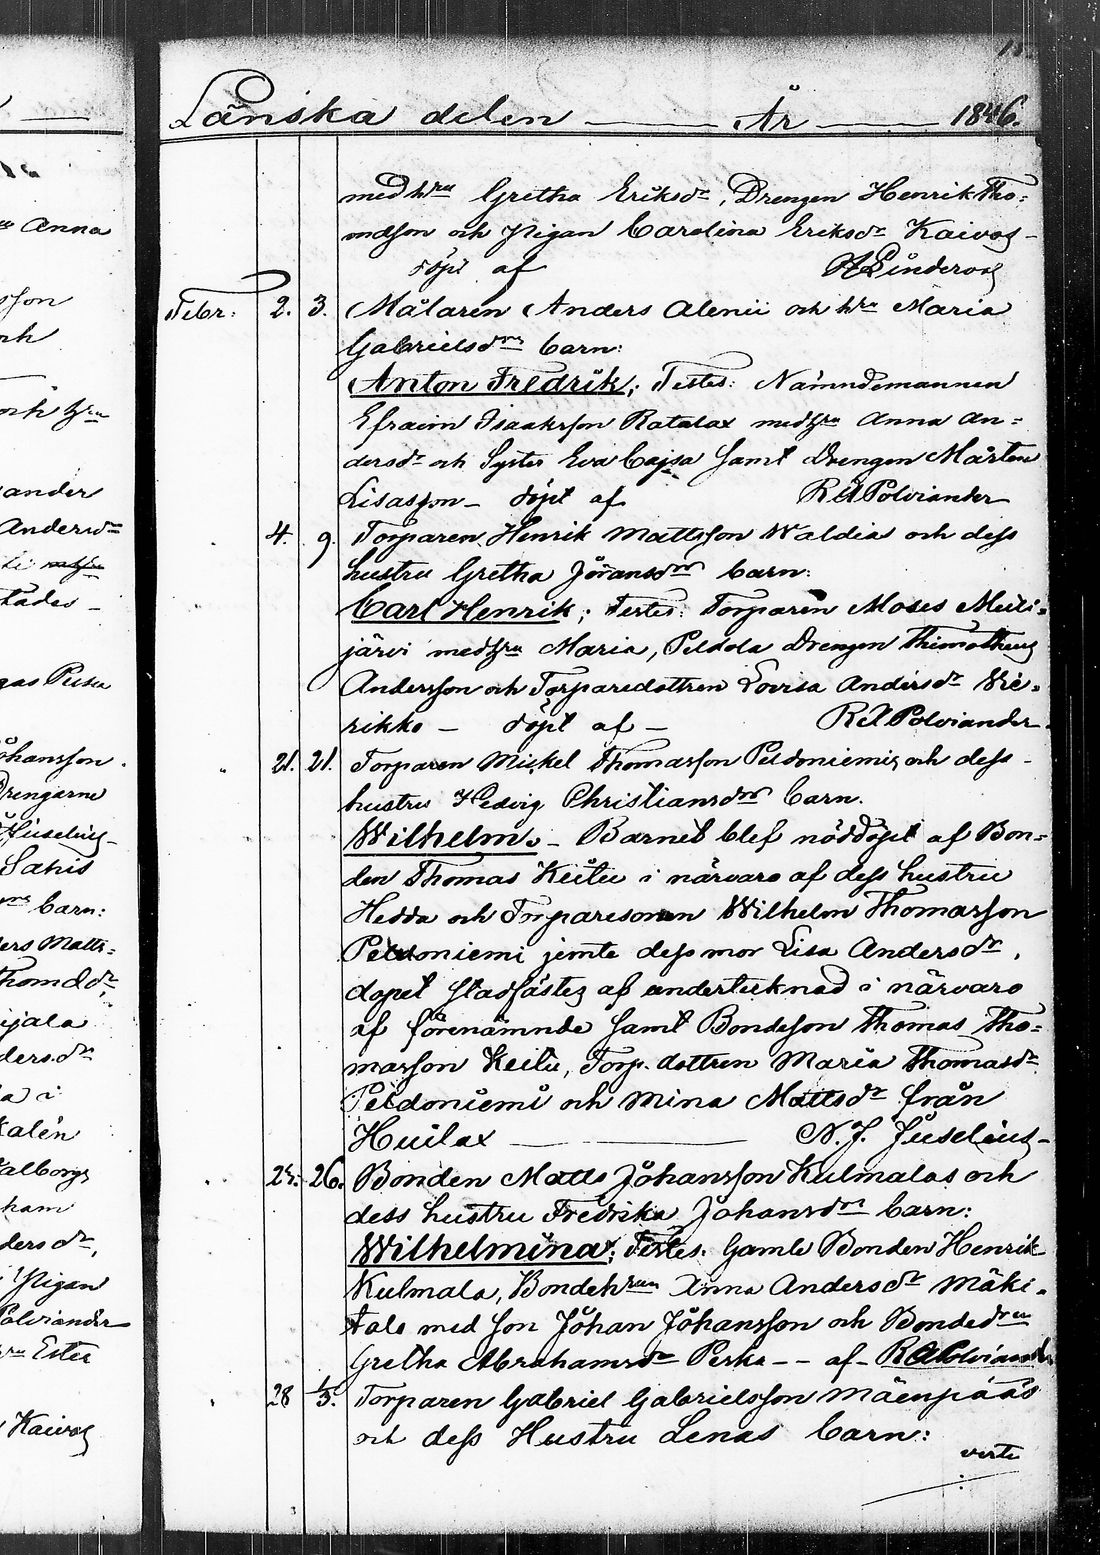 Anna
sson
och
och hru
ander
Andersdr
stades
gas Perka
Johansson
Drengarne
Juselius
Sahis
barn:
ders Matts-
Thomsdr
ijala
dersdr
a i
kalén
alborgs
ham
dersdr,
Pigan
Polviander
Ester
Kaivos
Länska delen — År — 1846.
med hru Gretha Eriksdr, Drengen Henrik Tho-
mdsson och Pigan Carolina Eriksdr Kaivos
döpt af
Febr: 2. 3. Målaren Anders Alenii och hru Maria
Gabrielsdrs barn:
Anton Fredrik; Testes: Nämndemannen
Efraim Isaaksson Ratalax med hru Anna An-
dersdr och Syster Eva Cajsa samt Drengen Mårten
Lisasson – döpt af R. A. Polviander
4. 9. Torparen Henrik Mattsson Waldia och dess
hustru Gretha Jöransdrs barn:
Carl Henrik; Testes: Torparen Moses Meiti-
järvi med hru Maria, Peldola Drengen Thimotheus
Andersson och Torparedottren Lovisa Andersdr Wie-
rikko – döpt af – R. A. Polviander.
21. 21. Torparen Mickel Thomasson Peldoniemis och dess
hustru Hedvig Christiansdrs barn.
Wilhelm. – Barnet blef nöddöpt af Bon-
den Thomas Keitu i närvaro af dess hustru
Hedda och Torparesonen Wilhelm Thomasson
Peldoniemi jemte dess mor Lisa Andersdr,
dopet stadfästes af undertecknad i närvaro
af förenämnde samt Bondeson Thomas Tho-
masson Keitu, Torp. dottren Maria Thomasdr
Peldoniemi och Mina Mattsdr från
Huilax — — N. J. Juselius
25. 26. Bonden Matts Johansson Kulmalas och
dess hustru Fredrika Johansdrs barn:
Wilhelmina; Testes: Gamle Bonden Henrik
Kulmala, Bondehrun Anna Andersdr Mäki-
talo med son Johan Johansson och Bondedrn
Gretha Abrahamsdr Perka – – af – R A Polviander
28 1/3. Torparen Gabriel Gabrielsson Mäenpääs
och dess Hustru Lenas barn:
verte